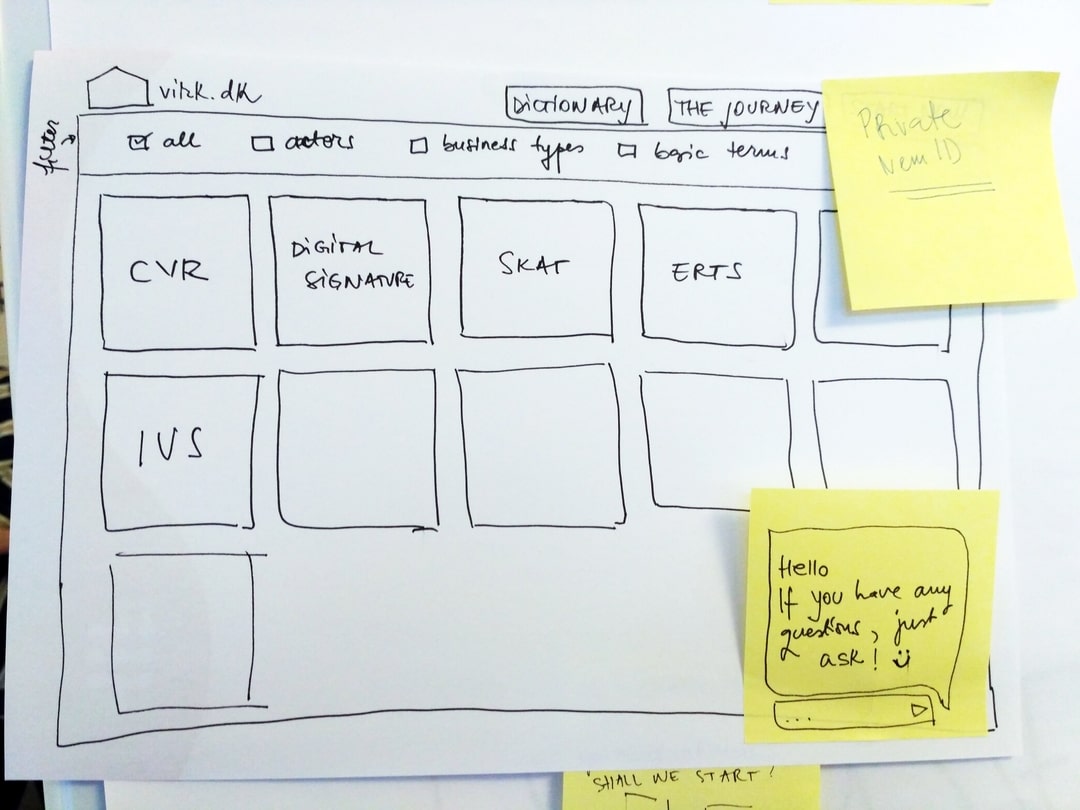 virk.dk
DICTIONARY
THE JOURNEY
Private
Nem ID
filter
all
actors
business types
basic terms
CVR
DIGITAL
SIGNATURE
SKAT
ERTS
IVS
Hello
If you have any
questions, just
ask!
...
"SHALL WE START?